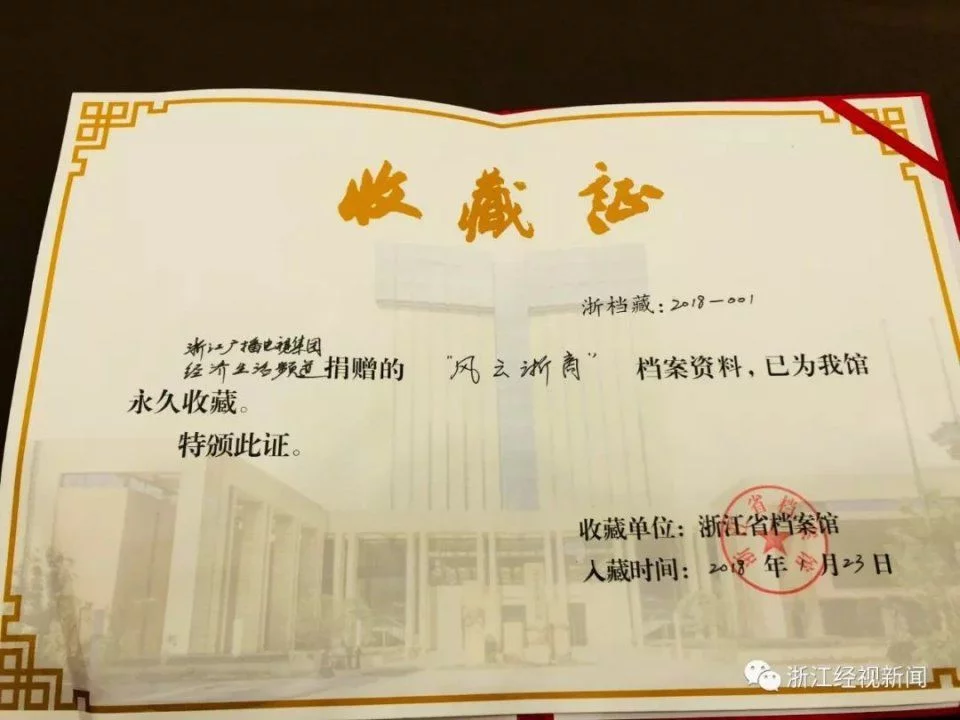 收藏证
浙档藏：2018-001
浙江广播电视集团
经济生活频道捐赠的 "风云浙商" 档案资料，已为我馆
永久收藏。
特颁此证。
收藏单位：浙江省档案馆
入藏时间：2018年 月23日
浙江省档案馆
浙江经视新闻